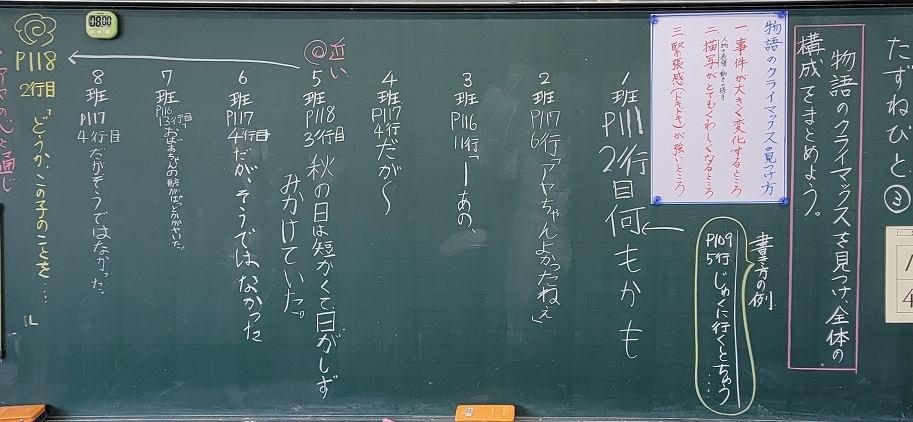 たずねびと③
物語のクライマックスを見つけ、全体の
構成をまとめよう。
物語のクライマックスの見つけ方
一 事件が大きく変化するところ
二 描写がとてもくわしくなるところ
三 緊張感(ドキドキ)が強いところ
書き方の例
P109
5行 じゅくに行くとちゅう…
1班 P111 2行目 何もかも
2班 P117 6行「アヤちゃんよかったねぇ」
3班 P116 11行「―あの、
4班 P117 4行だが〜
近い
5班 P118 3行目 秋の日は短かくて日がしず
みかけていた。
6班 P117 4行目だが、そうではなかった
7班 P116 13行目
8班 P117 4行目だがそうではなかった。
08:00
P118
2行目
「どうか、この子のことを…